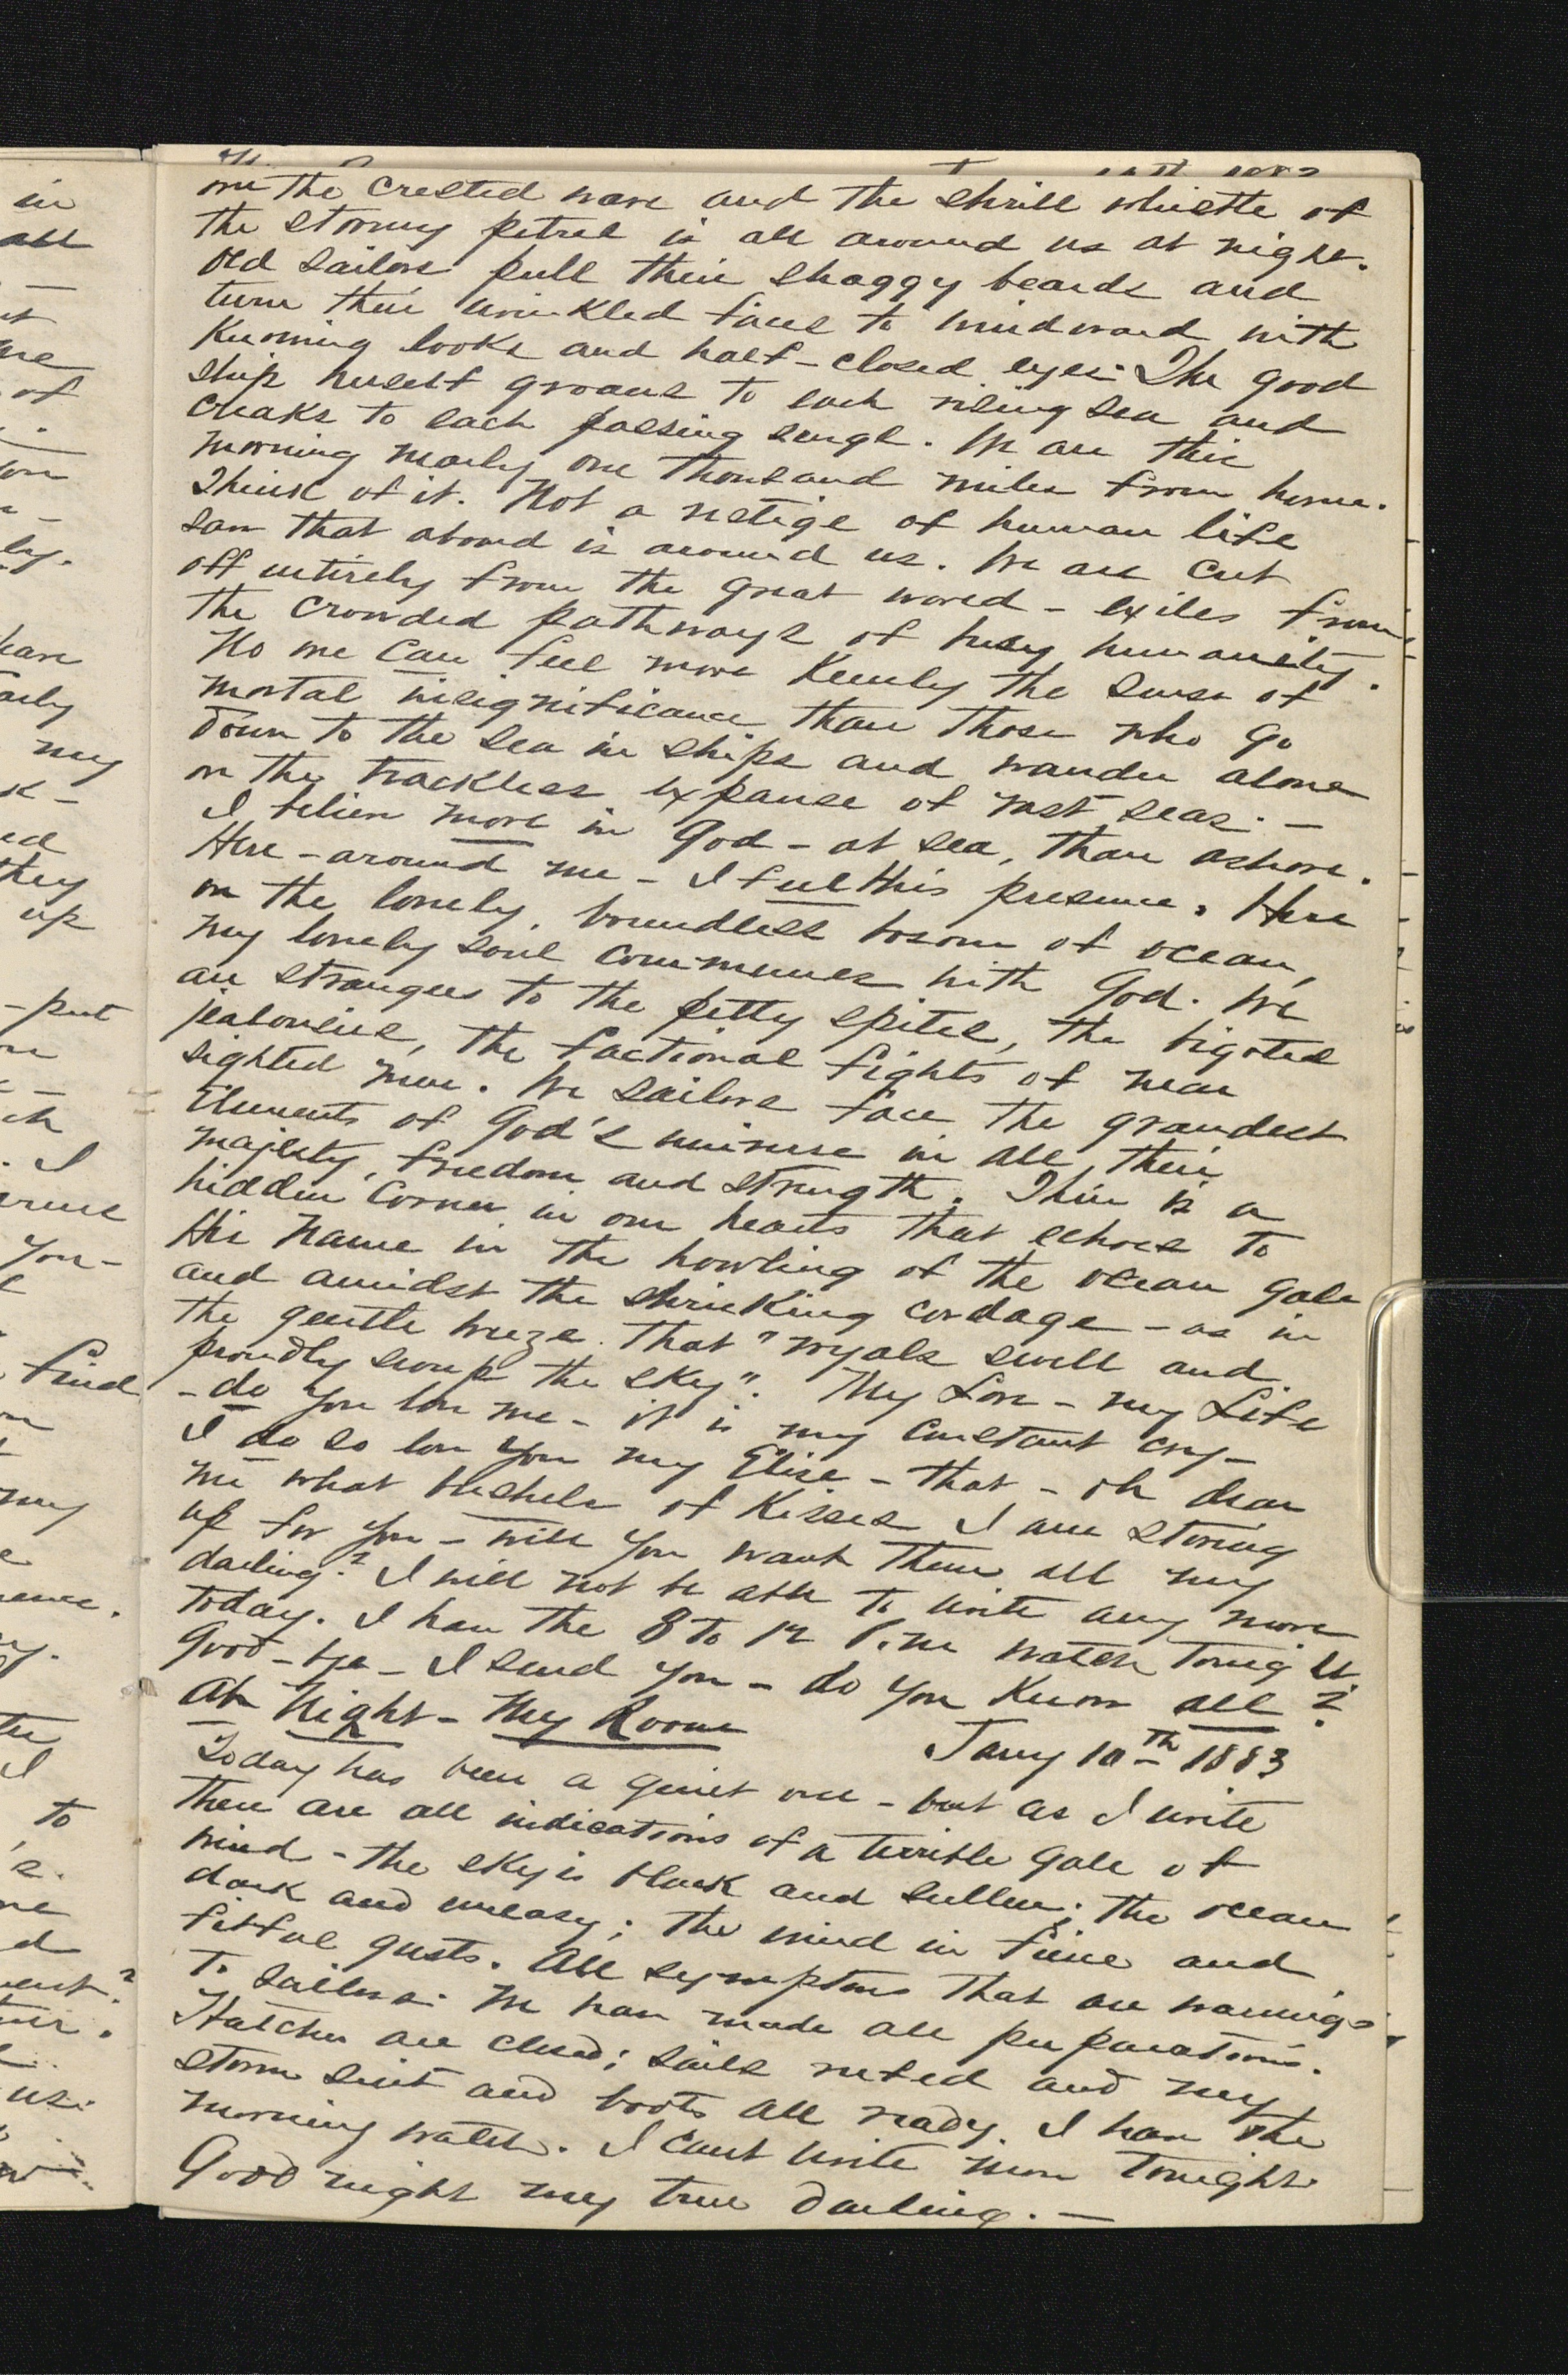 on the crested wave and the shrill whistle of
the stormy petrel is all around us at night.
Old sailors pull their shaggy beards and
turn their wrinkled faces to windward with
knowing looks and half-closed eyes. The good
ship herself groans to each rising sea and
creaks to each passing surge. We are this
morning nearly one thousand miles from home.
Think of it. Not a vestige of human life
save that aboard is around us. We are cut
off entirely from the great world - exiles from
the crowded pathways of busy humanity.
No one can feel more keenly the sense of
mortal insignificance than those who go
down to the sea in ships and wander alone
on the trackless expanse of vast seas. -
I believe more in God - at sea, than ashore.
Here - around me - I feel His presence. Here
on the lonely, boundless bosom of ocean,
my lonely soul communes with God. We
are strangers to the petty spites, the bigoted
jealousies, the factional fights of near
sighted men. We sailors face the grandest
elements of God's universe in all their
majesty, freedom and strength. There is a
hidden corner in our hearts that echoes to
His name in the howling of the ocean gale
and amidst the shrieking cordage - as in
the gentle breeze that "royals swell and
proudly sweep the sky". My Love - my Life
- do you love me - it is my constant cry -
I do so love you my Elise - that - oh dear
me what bushels of kisses I am storing
up for you - will you want them all my
darling? I will not be able to write any more
today. I have the 8 to 12 P.m watch tonight.
Good-bye - I send you - do you know all?
At Night - My Room Jany 10th 1883
Today has been a quiet one - but as I write
there are all indications of a terrible gale of
wind - the sky is black and sullen; the ocean
dark and uneasy; the wind in fierce and
fitful gusts. All symptoms that are warnings
to sailors. We have made all preparations.
Hatches are closed; sails reefed and my
storm suit and boots all ready. I have the
morning watch. I cant write more tonight.
Good night my true darling. -